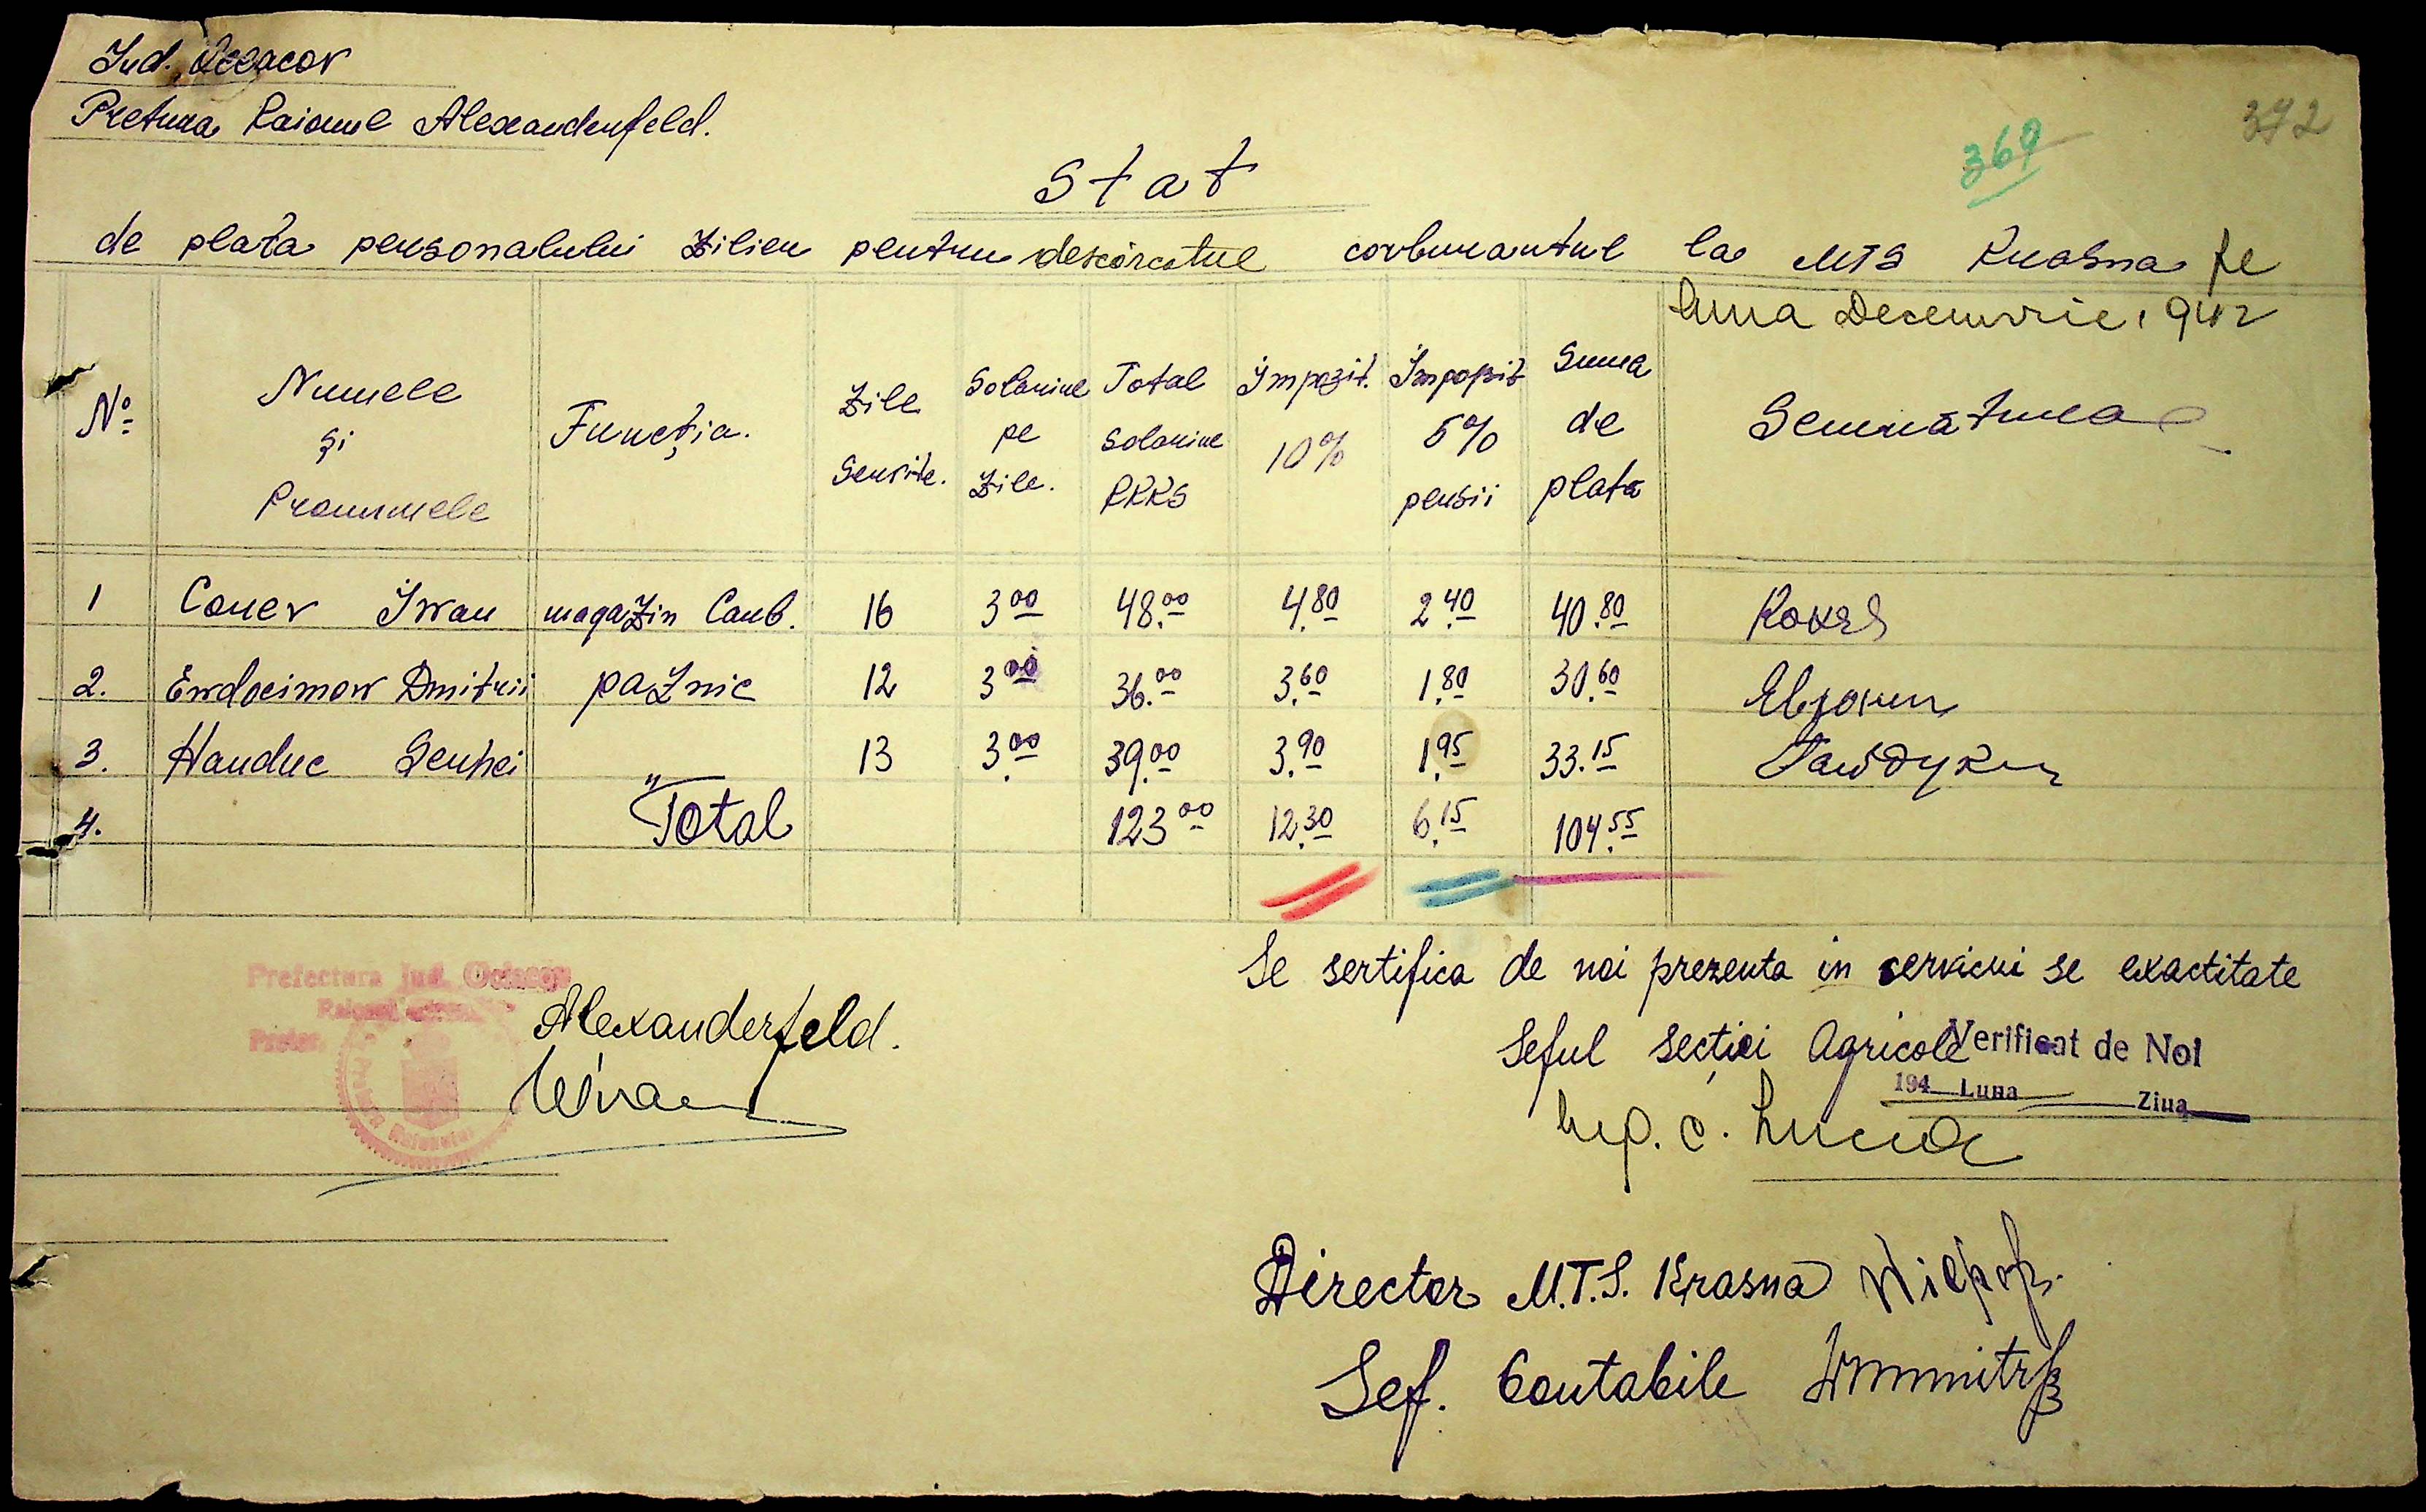 Jud. Oceacov
Pretura Raionul Alexanderfeld.
372
369
Stat
de plata personalului zilier pentru descărcatul corburantul la MTS Krasna pe
luna Decemvrie 1942
Nº
Numele și Pronumele
Funcția.
Zile Servite.
Solariul pe Zile.
Total Solariul RKKS
Impozit. 10%
Impozit 5% pensii
Suma de plata
Semnatura
1 Conev Iwan magazin Carb. 16 3.00 48.00 4.80 2.40 40.80
2. Ewdocimow Dmitrii paznic 12 3.00 36.00 3.60 1.80 30.60 Евдоким
3. Handuc Serhei " 13 3.00 39.00 3.90 1.95 33.15
4. Total 123.00 12.30 6.15 104.55
Se sertifica de noi prezenta in serviciu se exactitate
Seful Secției Agricole
Verificat de Noi
194 Luna Ziua
Ing. C.
Prefectura Jud. Oceacov
Raionul Alexanderfeld.
Pretor
Pretura Raionului
Director M.T.S. Krasna
Sef. Contabile